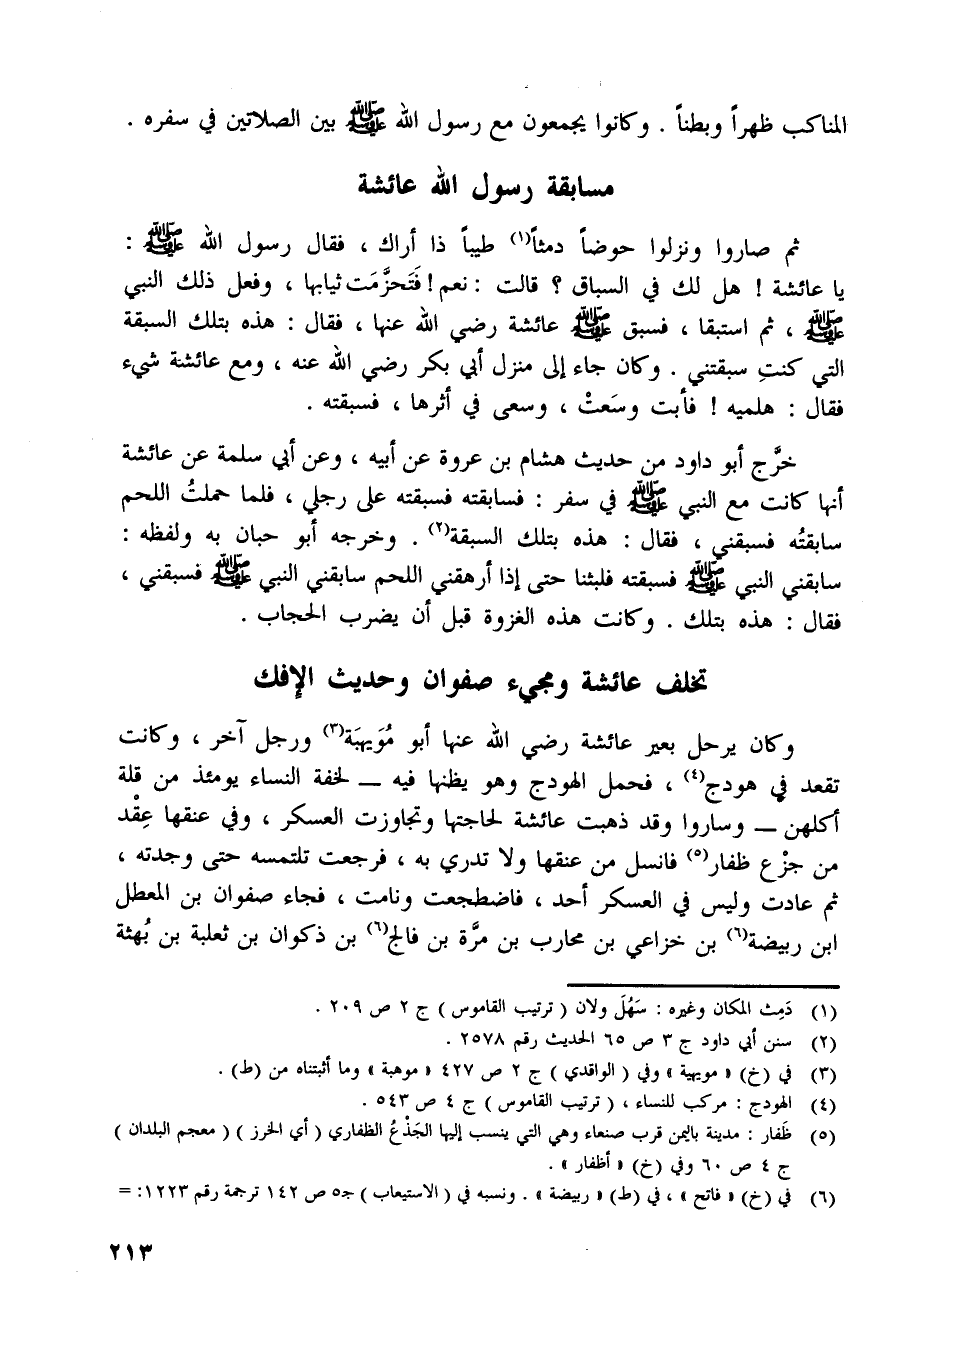 المناكب ظهراً وبطناً . وكانوا يجمعون مع رسول الله ﷺ بين الصلاتين في سفره .
مسابقة رسول الله عائشة
ثم صاروا ونزلوا حوضاً دمثاً(١) طيباً ذا أراك ، فقال رسول الله ﷺ :
يا عائشة ! هل لك في السباق ؟ قالت : نعم ! فَتَحزَّمَت ثيابها ، وفعل ذلك النبي
ﷺ ، ثم استبقا ، فسبق ﷺ عائشة رضي الله عنها ، فقال : هذه بتلك السبقة
التي كنتِ سبقتني . وكان جاء إلى منزل أبي بكر رضي الله عنه ، ومع عائشة شيء
فقال : هلميه ! فأبت وسَعتْ ، وسعى في أثرها ، فسبقته .
خرَّج أبو داود من حديث هشام بن عروة عن أبيه ، وعن أبي سلمة عن عائشة
أنها كانت مع النبي ﷺ في سفر : فسابقته فسبقته على رجلي ، فلما حملتُ اللحم
سابقتُه فسبقني ، فقال : هذه بتلك السبقة(٢) . وخرجه أبو حبان به ولفظه :
سابقني النبي ﷺ فسبقته فلبثنا حتى إذا أرهقني اللحم سابقني النبي ﷺ فسبقني ،
فقال : هذه بتلك . وكانت هذه الغزوة قبل أن يضرب الحجاب .
تخلف عائشة ومجيء صفوان وحديث الإفك
وكان يرحل بعير عائشة رضي الله عنها أبو مُوَيهبَة(٣) ورجل آخر ، وكانت
تقعد في هودج(٤) ، فحمل الهودج وهو يظنها فيه ــ لخفة النساء يومئذ من قلة
أكلهن ــ وساروا وقد ذهبت عائشة لحاجتها وتجاوزت العسكر ، وفي عنقها عِقْد
من جزْع ظفار(٥) فانسل من عنقها ولا تدري به ، فرجعت تلتمسه حتى وجدته ،
ثم عادت وليس في العسكر أحد ، فاضطجعت ونامت ، فجاء صفوان بن المعطل
ابن ربيضة(٦) بن خزاعي بن محارب بن مرَّة بن فالج(٦) بن ذكوان بن ثعلبة بن بُهثة
(١) دَمِث المكان وغيره : سَهُلَ ولان ( ترتيب القاموس ) ج ٢ ص ٢٠٩ .
(٢) سنن أبي داود ج ٣ ص ٦٥ الحديث رقم ٢٥٧٨ .
(٣) في (خ) « مويهية » وفي ( الواقدي ) ج ٢ ص ٤٢٧ « موهبة » وما أثبتناه من (ط) .
(٤) الهودج : مركب للنساء ، ( ترتيب القاموس ) ج ٤ ص ٥٤٣ .
(٥) ظَفار : مدينة باليمن قرب صنعاء وهي التي ينسب إليها الجَذْعُ الظفاري ( أي الخرز ) ( معجم البلدان )
ج ٤ ص ٦٠ وفي (خ) « أظفار » .
(٦) في (خ) « فاتح » ، في (ط) « ربيضة » . ونسبه في ( الاستيعاب ) ج٥ ص ١٤٢ ترجمة رقم ١٢٢٣: =
٢١٣